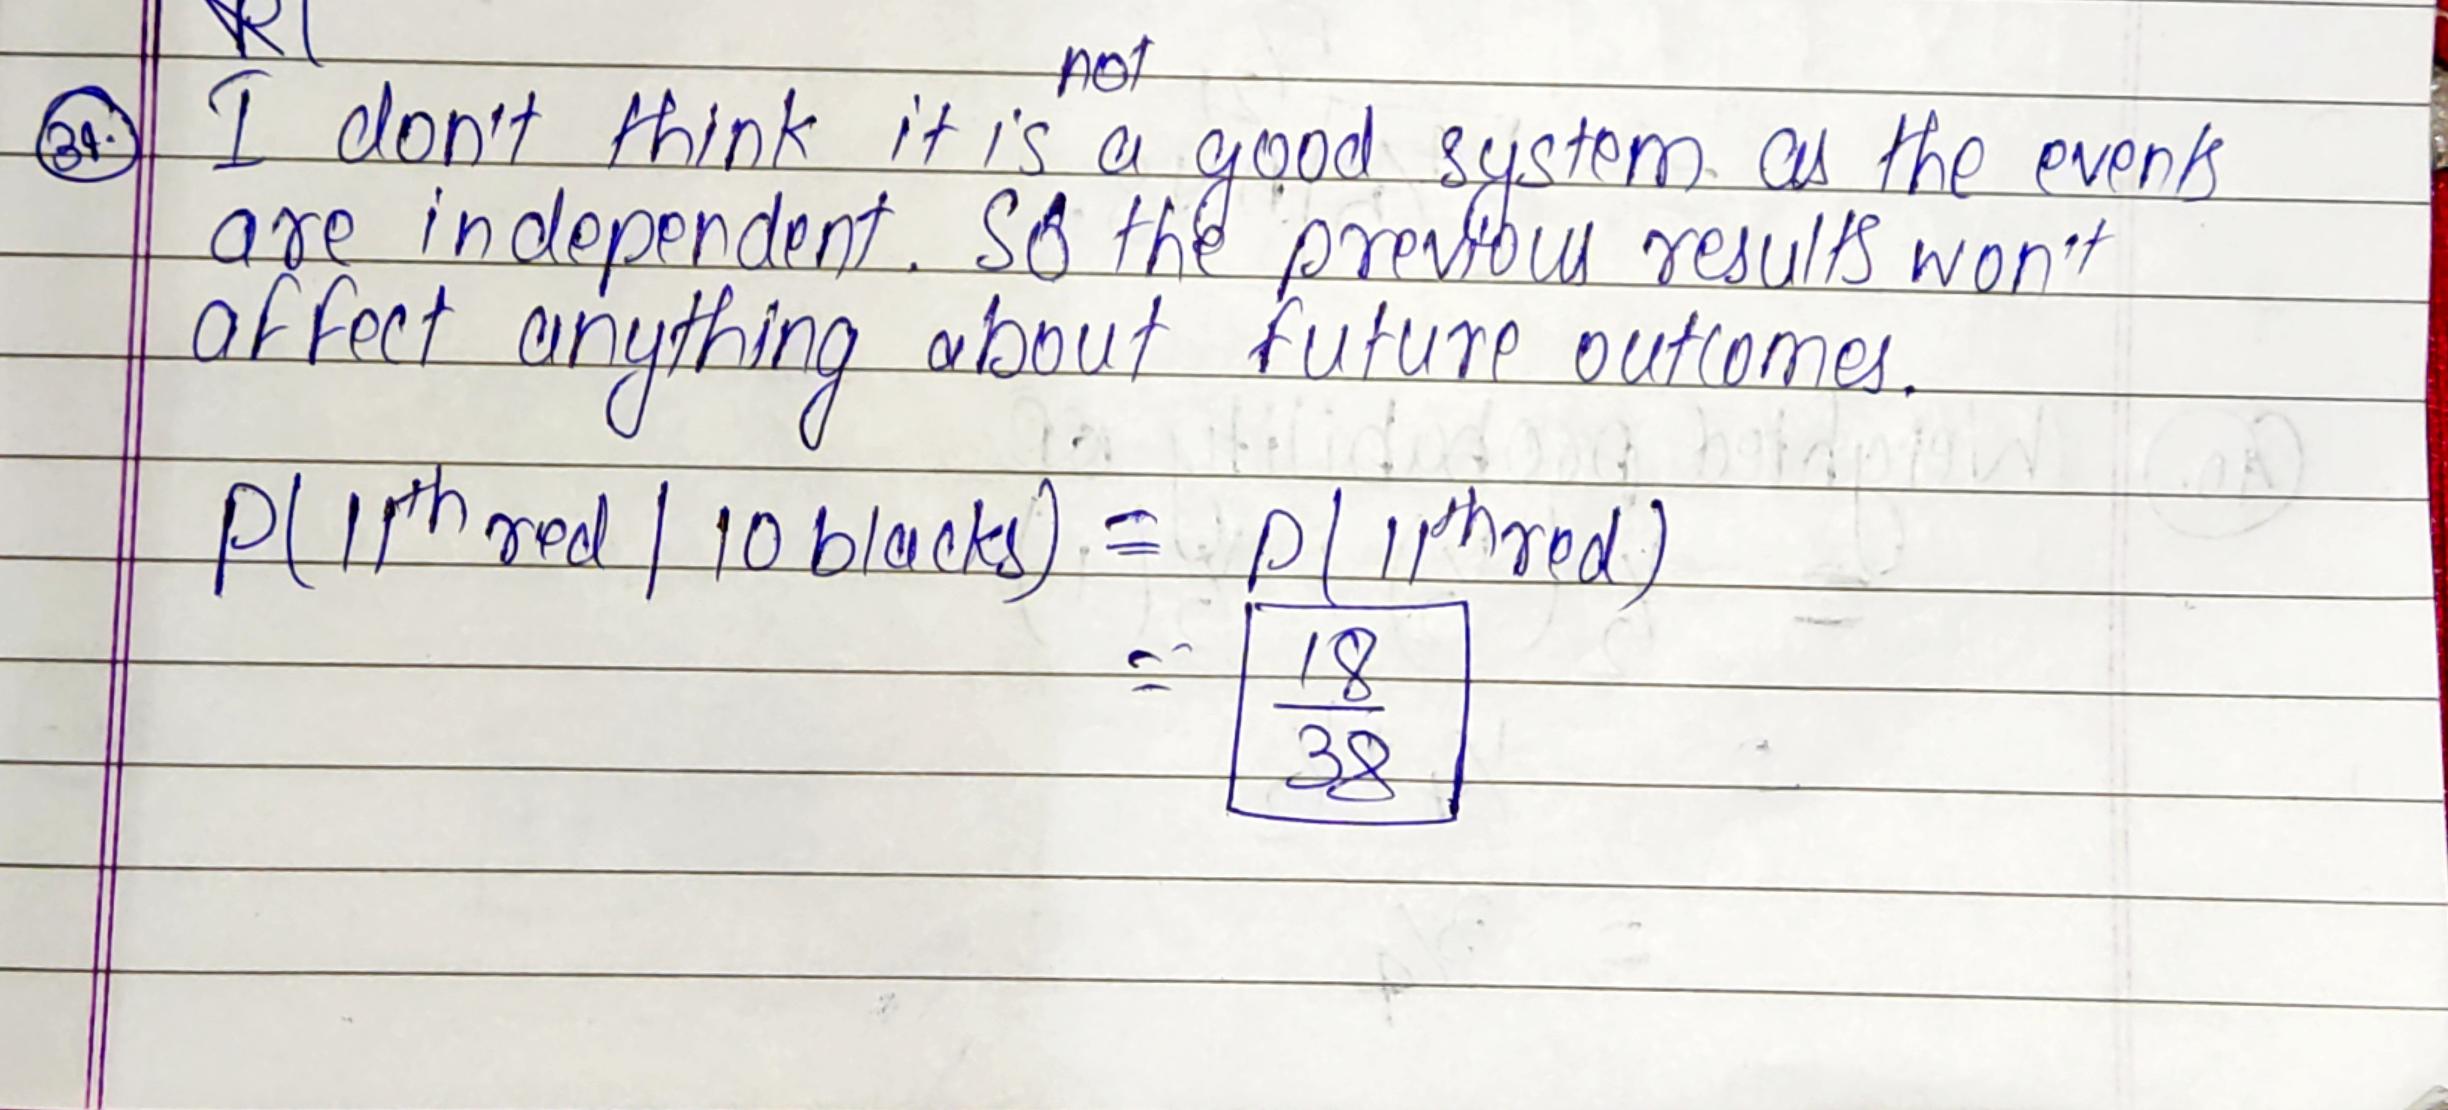 34.
I don't think it is not a good system as the events
are independent. So the previous results won't
affect anything about future outcomes.
P(11th red | 10 blacks) = P(11th red)
= 18
38